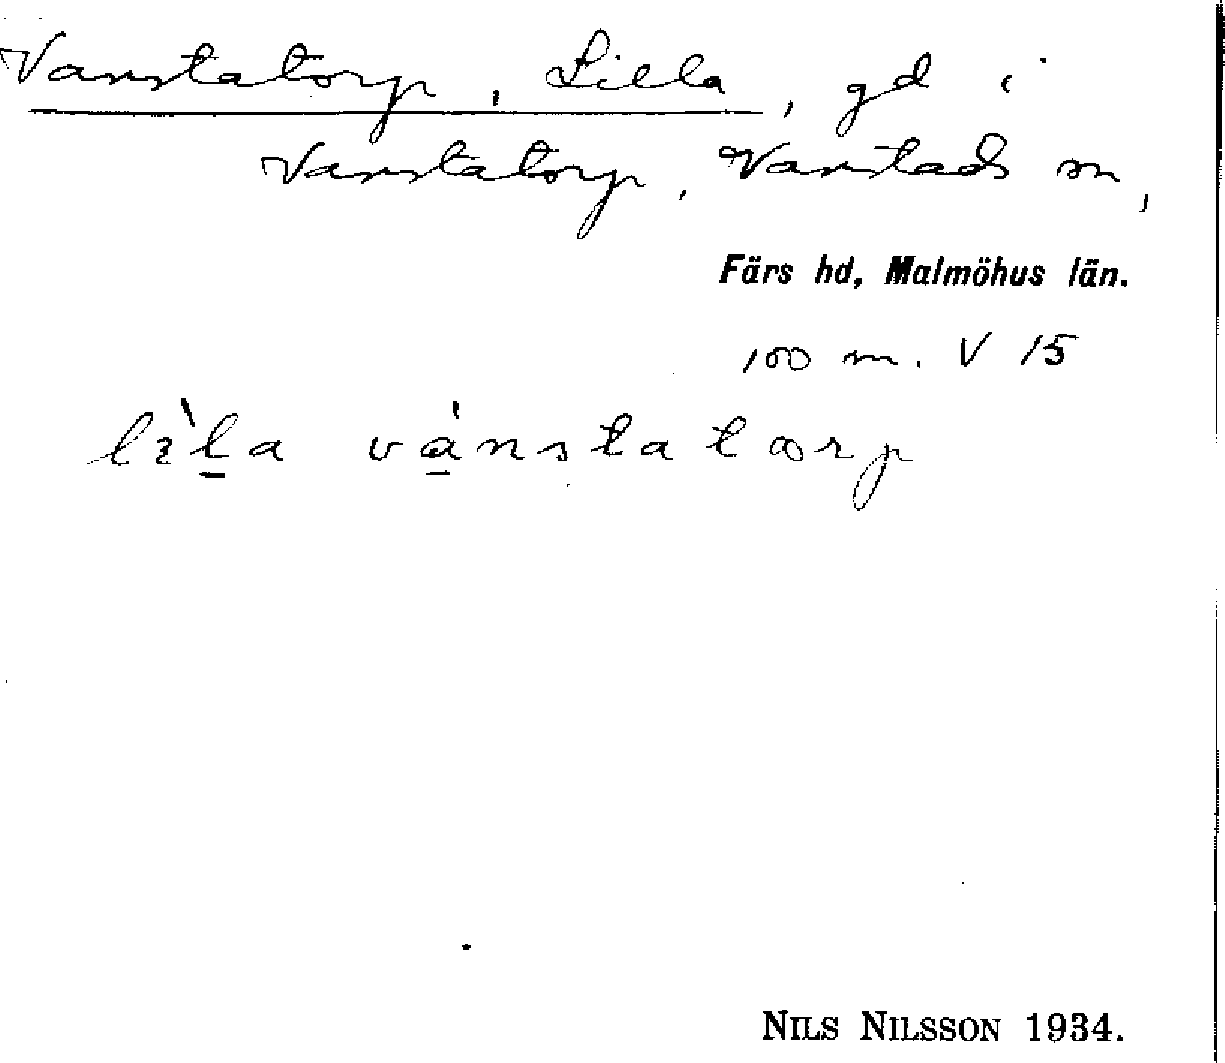 Vanstatorp, Lilla, gd i
Vanstatorp, Vanstads sn,
Färs hd, Malmöhus län.
100 m. V 15
lìla vánstatorp
NILS NILSSON 1934.